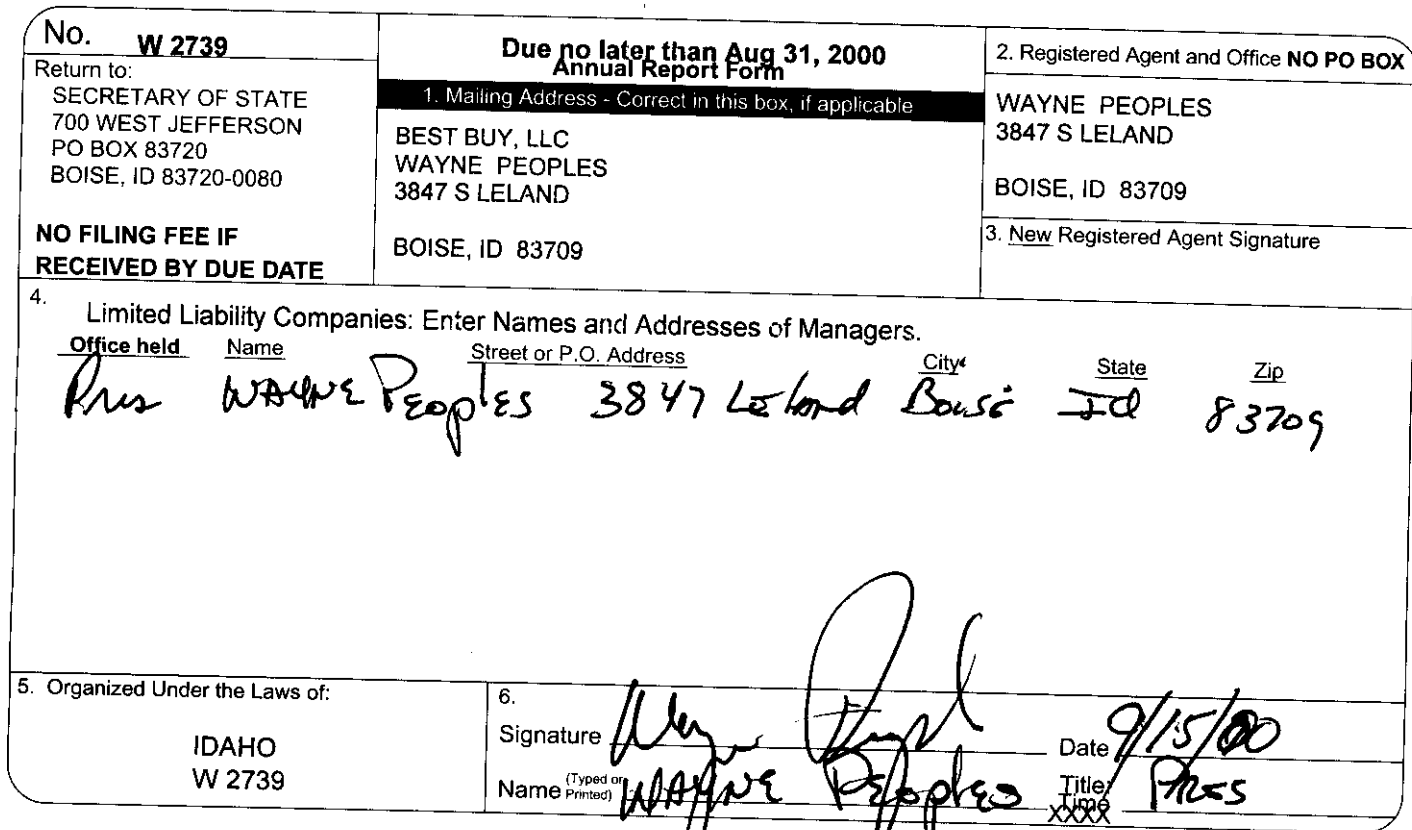 No. W 2739
Return to:
SECRETARY OF STATE
700 WEST JEFFERSON
PO BOX 83720
BOISE, ID 83720-0080
NO FILING FEE IF
RECEIVED BY DUE DATE
Due no later than Aug 31, 2000
Annual Report Form
1. Mailing Address - Correct in this box, if applicable
BEST BUY, LLC
WAYNE PEOPLES
3847 S LELAND
BOISE, ID 83709
2. Registered Agent and Office NO PO BOX
WAYNE PEOPLES
3847 S LELAND
BOISE, ID 83709
3. New Registered Agent Signature
4.
Limited Liability Companies: Enter Names and Addresses of Managers.
Office held Name Street or P.O. Address City State Zip
Pres WAYNE PEoplEs 3847 LeLand Boise Id 83709
5. Organized Under the Laws of:
IDAHO
W 2739
6.
Signature Wayne Peoples Date 9/15/00
Name (Typed or Printed) WAYNE PEoples Title/Time XXXX PRES